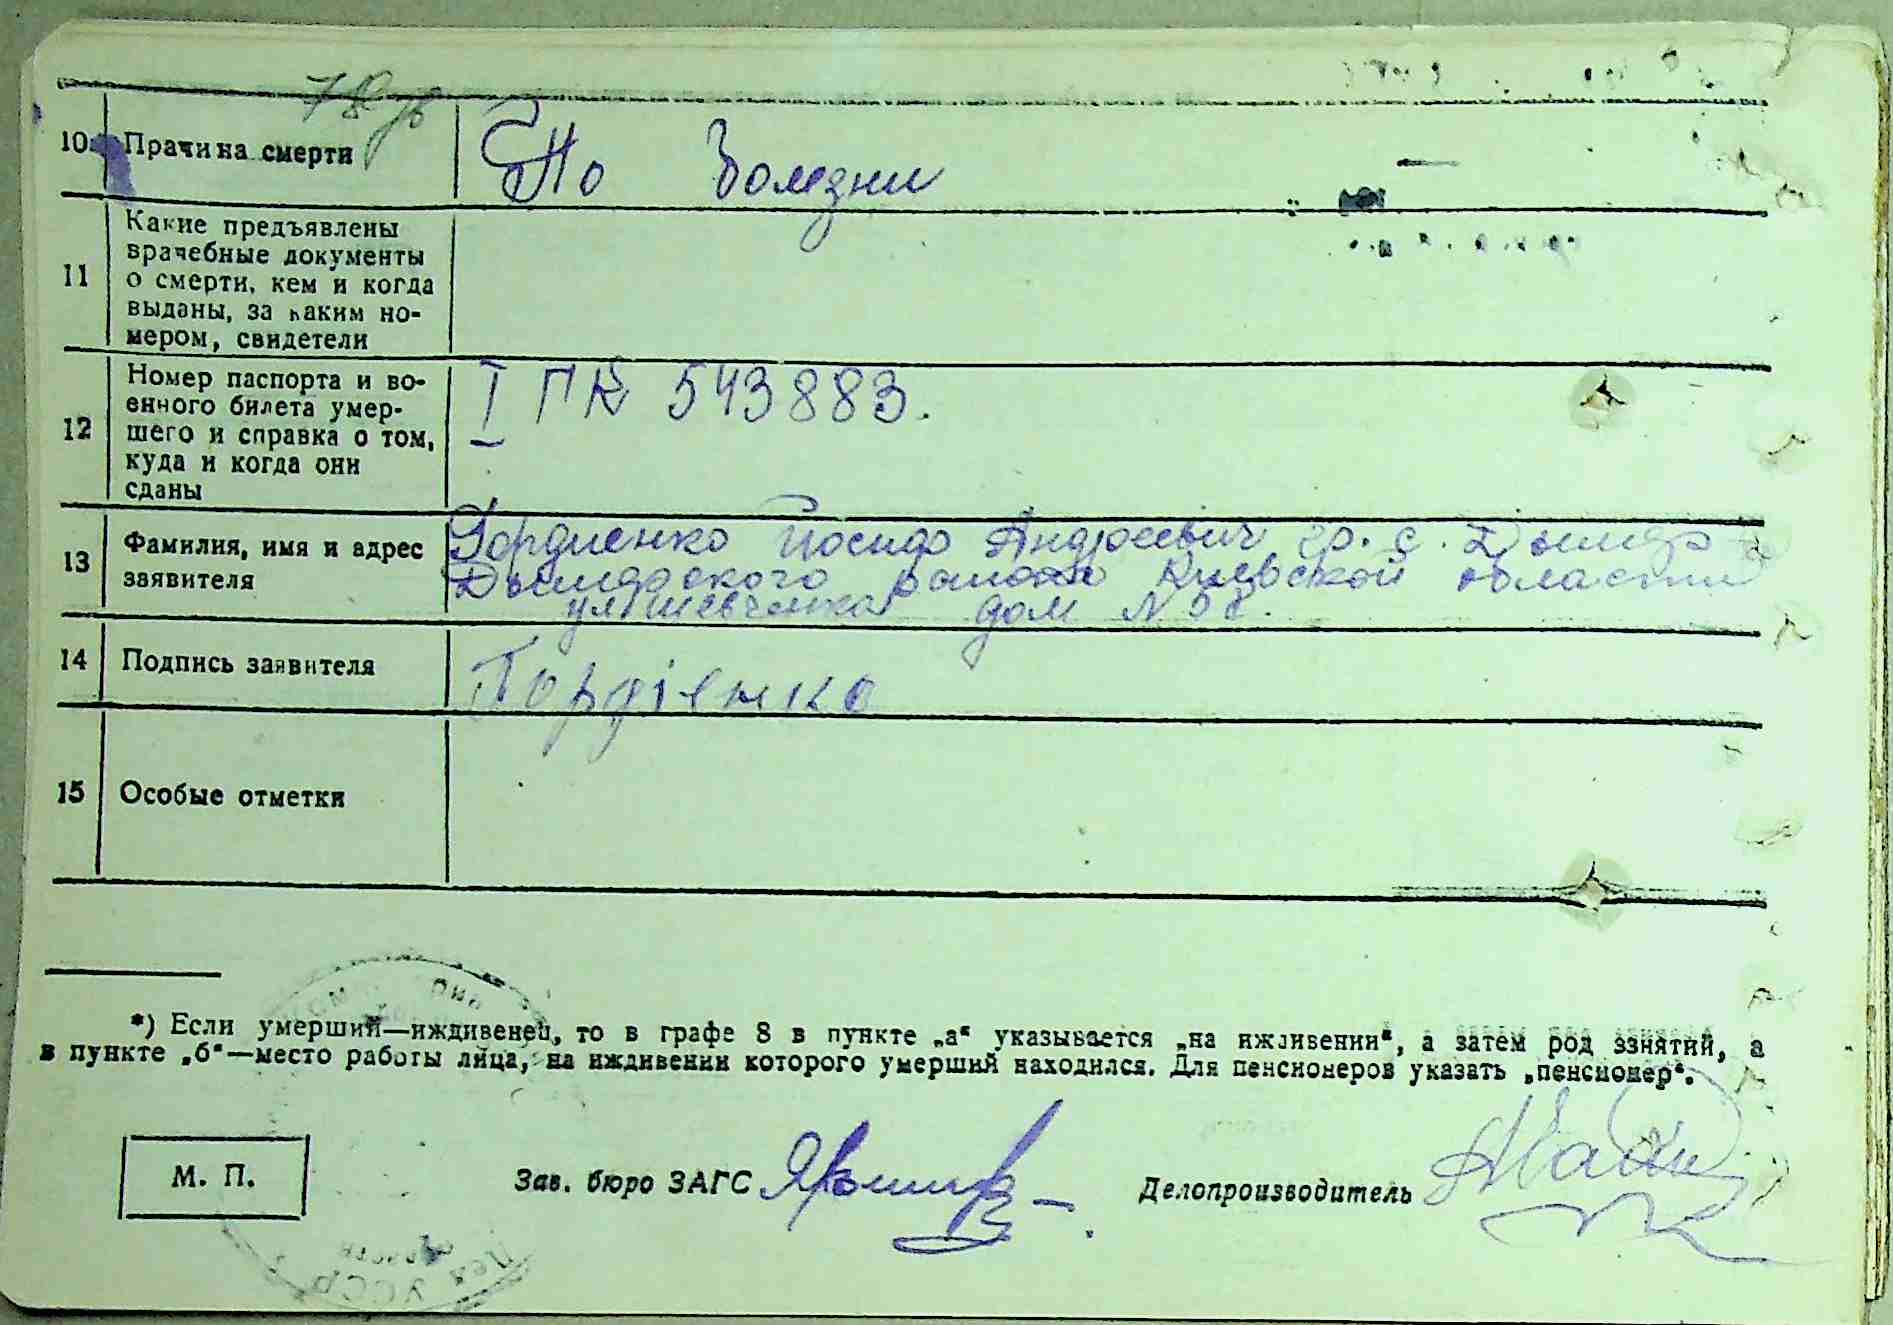 10 Причина смерти По болезни —
11 Какие предъявлены
врачебные документы
о смерти, кем и когда
выданы, за каким но-
мером, свидетели
12 Номер паспорта и во-
енного билета умер-
шего и справка о том,
куда и когда они
сданы
I ПК 543883.
13 Фамилия, имя и адрес
заявителя
Гордиенко Иосиф Андреевич гр. с. Дымер
Дымерского района Киевской области
ул Шевченка дом №
14 Подпись заявителя Гордіенко
15 Особые отметки
*) Если умерший—иждивенец, то в графе 8 в пункте „а“ указывается „на иждивении“, а затем род занятий, а
в пункте „б“—место работы лица, на иждивении которого умерший находился. Для пенсионеров указать „пенсионер“.
М. П. Зав. бюро ЗАГС Делопроизводитель
УССР